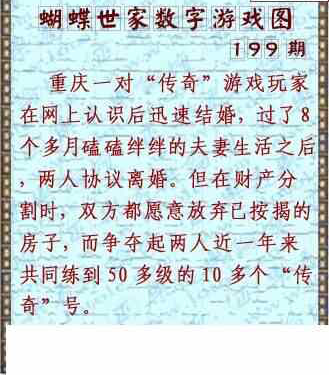 蝴蝶世家数字游戏图
199期
重庆一对“传奇”游戏玩家
在网上认识后迅速结婚，过了8
个多月磕磕绊绊的夫妻生活之后
，两人协议离婚。但在财产分
割时，双方都愿意放弃已按揭的
房子，而争夺起两人近一年来
共同练到50多级的10多个“传
奇”号。